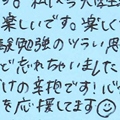 う。私は今大学生
楽しいです。楽しくて
験勉強のツライ思
ど忘れちゃいました
けの辛抱です！バ
を応援してます☺